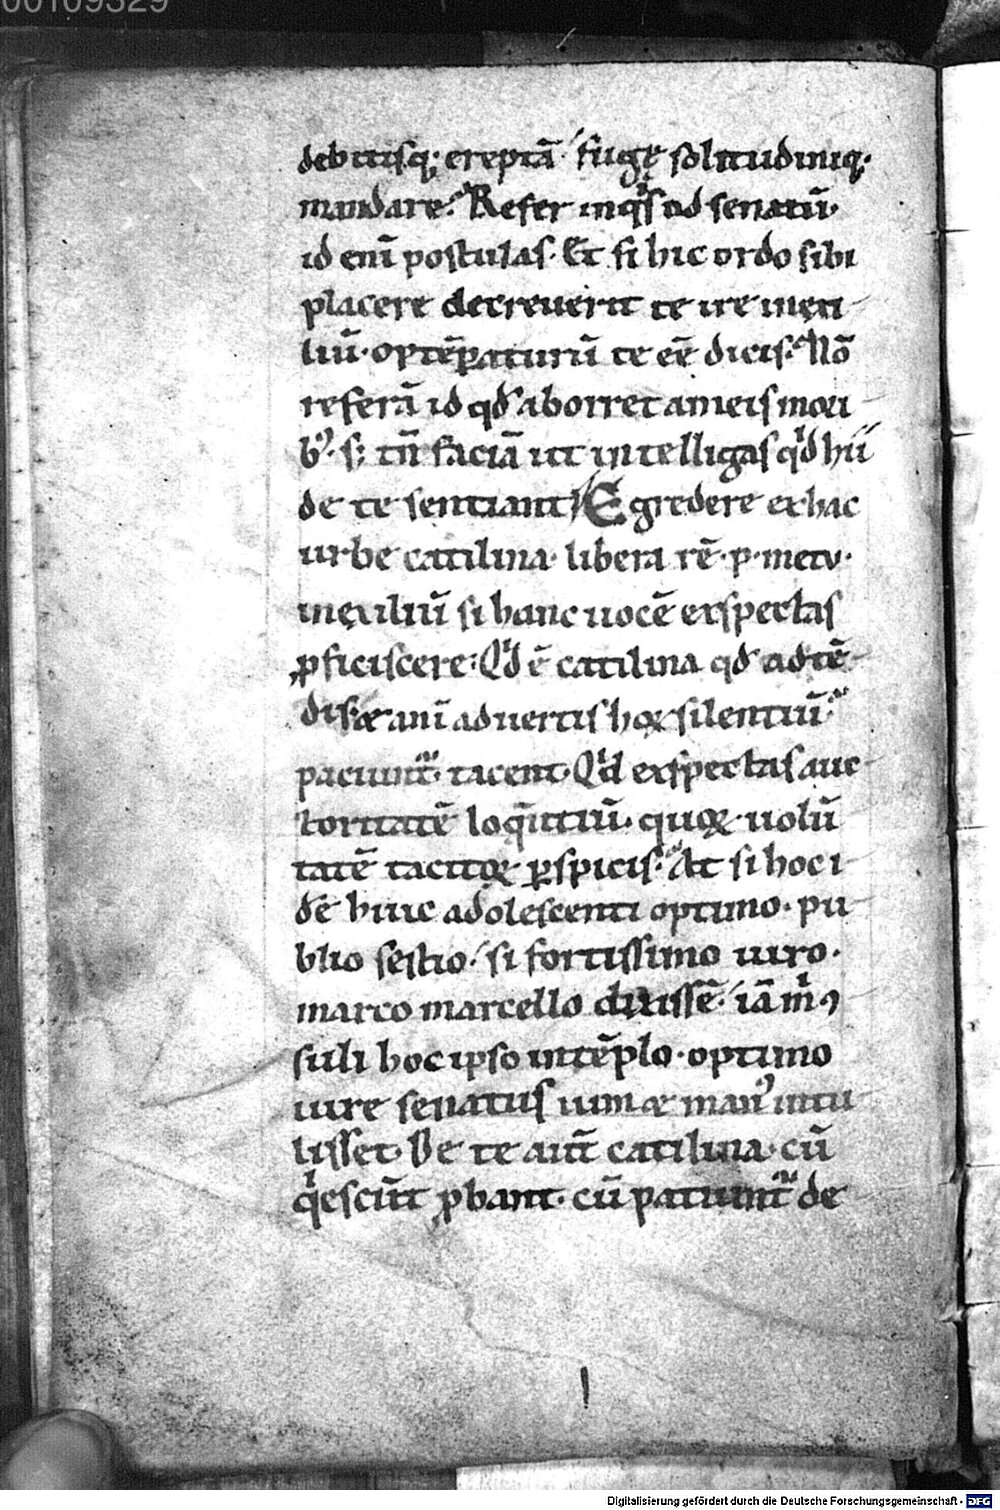 00109329
debitisq; ereptā fugę solitudiniq.
mandare. Refer inqͥs ad senatū.
id enī postulas. Et si hic ordo sibi
placere decreuerit te ire inexi
liū. optēꝑaturū te eē dicis. Nō
referā id qđ aborret a meis mori
b᷒. s; tn̄ faciā ut intelligas qͥd hii
de te sentiant. Egredere ex hac
urbe catilina. libera rē .p. metu.
inexiliū si hanc uocē exspectas
ꝓficiscere. Qͥd ē catilina qđ adtē
dis. & anī aduertis hoꝝ silentiū.
paciunt᷑. tacent. Qͥd exspectas auc
toritatē loq̄ntiū. quoꝝ uolū
tatē tacitoꝝ ꝑspicis. At si hoc i
dē huic adolescenti optimo. pu
blio sestio. si fortissimo uiro.
marco marcello dixissē. iā m̍ ꝯ
suli hoc ipso intēplo. optimo
iure senatus uim & man᷒ intu
lisset. De te aut̄ catilina. cū
qͥescūt ꝓbant. cū patiunt᷑ de
Digitalisierung gefördert durch die Deutsche Forschungsgemeinschaft - DFG